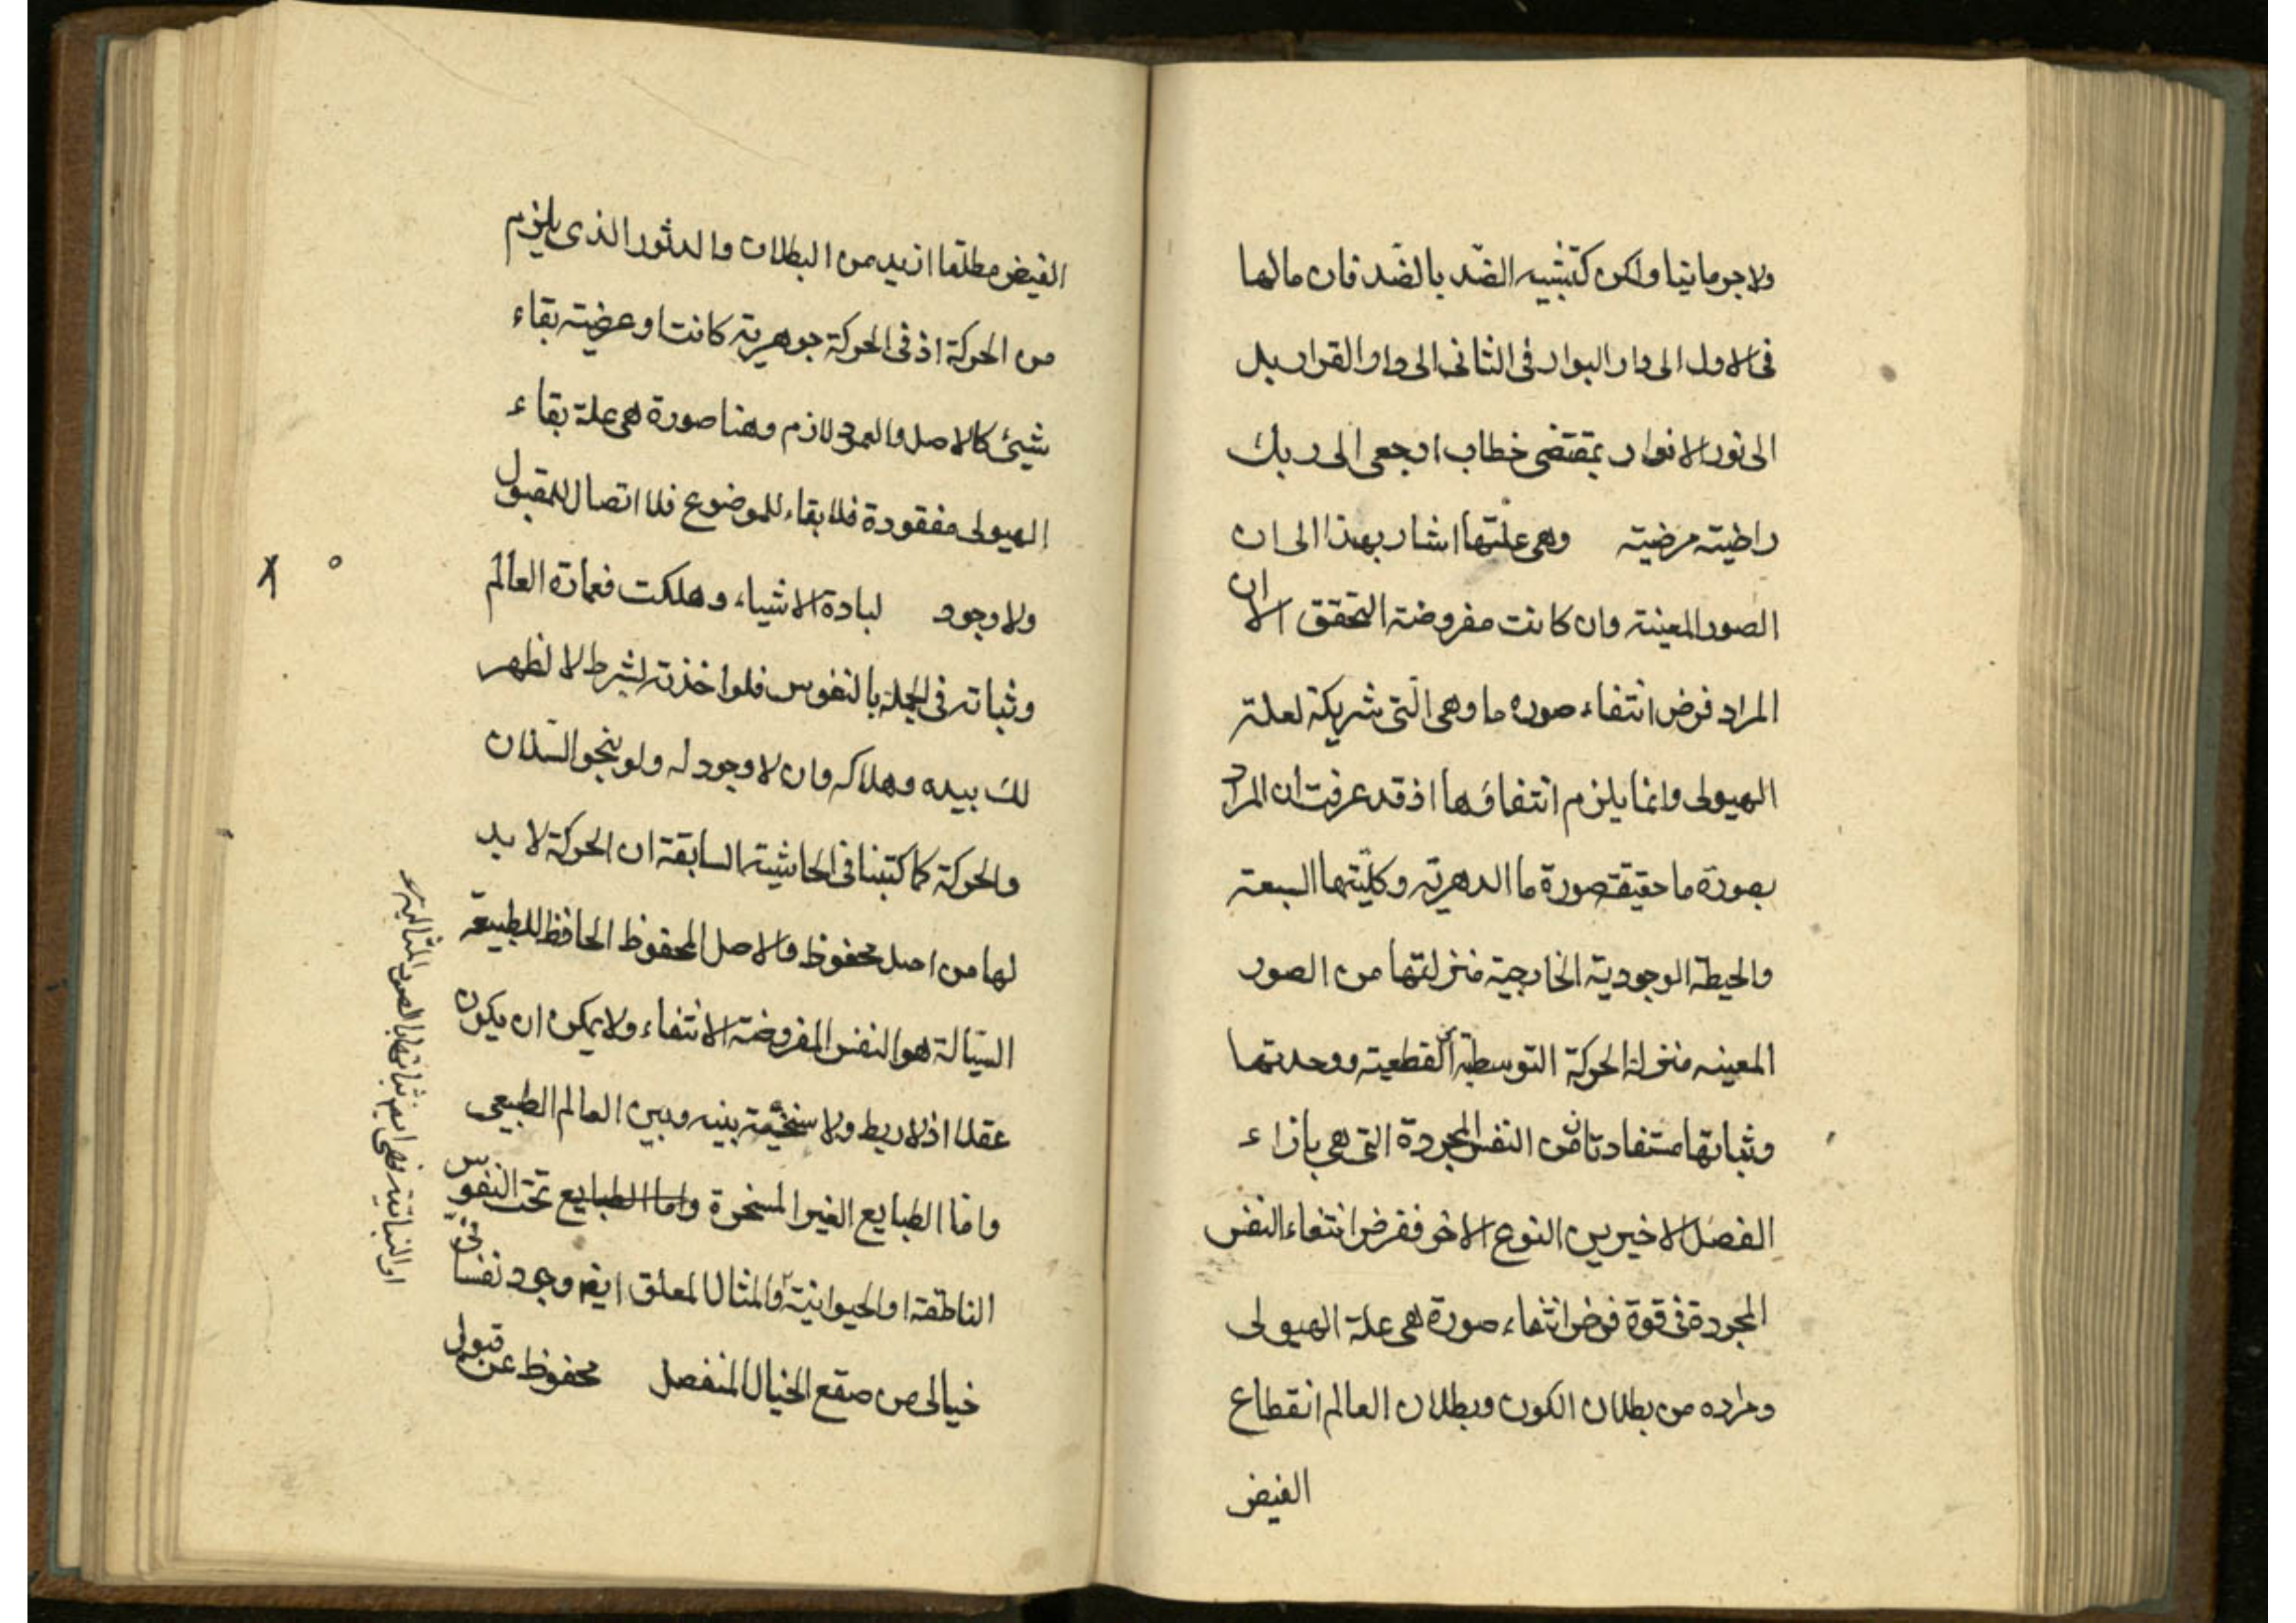 ولا جرمانيا ولكن كتشبيه الضد بالضد فان مالها
فى الاول الى دار البوار فى الثانى الى دار القرار بل
الى نور الانوار بمقتضى خطاب ارجعى الى ربك
راضيته مرضيته وهى علتها اشار بهذا الى ان
الصور المعينة وان كانت مفروضة التحقق الا ان
المراد فرض انتفاء صوره ما وهى التى شريكة لعلة
الهيولى وانما يلزم انتفاؤها اذ قد عرفت ان المراد
بصورة ما حقيقة صورة ما الدهرية وكليتها السعة
والحيطة الوجودية الخارجية منزلتها من الصور
المعينه منزلة الحركة التوسطية القطعية ووحدتها
وثباتها مستفادتان من النفس المجردة التى هى بازاء
الفصل الاخير بين النوع الاخر ففرض انتفاء النفس
المجردة فى قوة فرض انتفاء صورة هى علة الهيولى
ومراده من بطلان الكون وبطلان العالم انقطاع
الفيض
الفيض مطلقا ازيد من البطلان والدثور الذى يلزم
من الحركة اذ فى الحركة جوهرية كانت او عرضية بقاء
شيئ كالاصل والعمود لازم وهنا صورة هى علة بقاء
الهيولى مفقودة فلا بقاء للموضوع فلا اتصال للمقبول
ولا وجود لبادة الاشياء وهلكت فعمارة العالم
وثباته فى الجملة بالنفوس فلو اخذته بشرط لا لظهر
لك بيده وهلاكه وان لا وجود له ولو بنحو السيلان
والحركة كما كتبنا فى الحاشية السابقة ان الحركة لا بد
لها من اصل محفوظ والاصل المحفوظ الحافظ للطبيعة
السيالة هو النفس المفروضة الانتفاء ولا يمكن ان يكون
عقلا اذ لا ربط ولا سنخية بينه وبين العالم الطبيعى
واما الطبايع الغير المسخرة واما الطبايع تحت النفوس
الناطقة او الحيوانية والمثال المعلق ايضا وجود نفسا
خيالى من صقع الخيال المنفصل محفوظ عن قبول
او النباتية فهى ايضا ثباتها بالصور المثالية